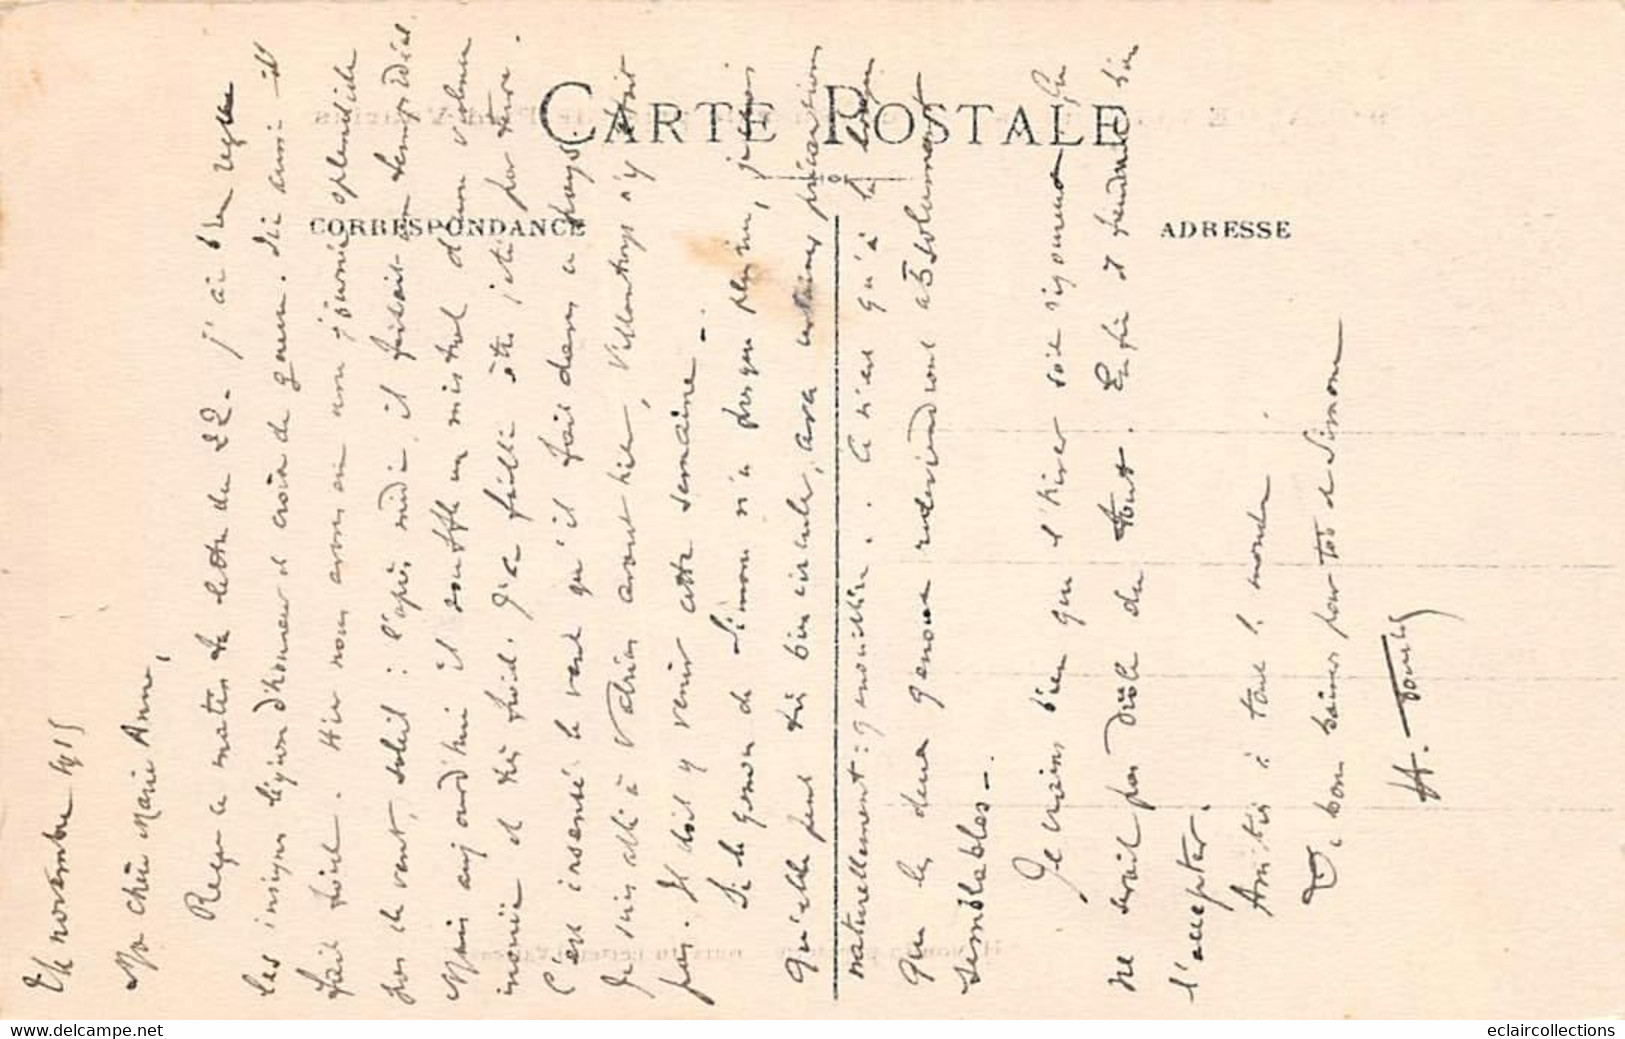 CARTE POSTALE
CORRESPONDANCE
ADRESSE
24 novembre 1915
Ma chère Marie Anne,
Reçu ce matin ta lettre du 22. J'ai bien reçu
les insignes légion d'honneur et croix de guerre. Ici aussi il
fait froid. Hier nous avons eu une journée splendide
pas de vent, soleil : l'après midi il faisait un temps idéal
Mais aujourd'hui il souffle un mistral d'une violence
inouïe et très froid. J'ai failli être jeté par terre.
C'est insensé le vent qu'il fait dans ce pays.
Je suis allé à avant hier, n'y était
pas. Il doit y venir cette semaine.
Si le genou de Simone n'a presque plus rien, je
qu'elle peut très bien circuler, avec certaines précautions
naturellement : genouillère. Ce n'est qu'à la
que les deux genoux redeviendront absolument
semblables.
Je crains bien que l'hiver soit rigoureux,
ne serait pas drôle du tout. Enfin il faudra bien
l'accepter.
Amitiés à tout le monde.
De bons baisers pour toi et Simone
H.
eclaircollections
www.delcampe.net